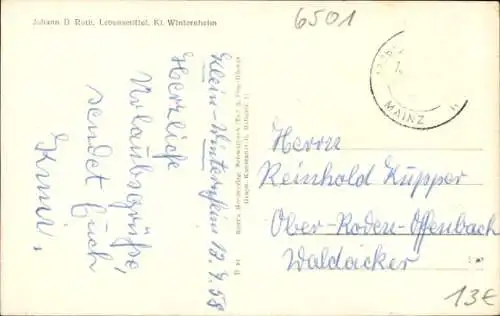 Johann D. Ruth, Lebensmittel, Kl. Winternheim
6501
MAINZ
Klein-Winternheim 13.7.58
Herzliche
Urlaubsgrüße,
sendet Euch
Herrn
Reinhold Kupper
Ober-Roden-Offenbach
Waldacker
13€